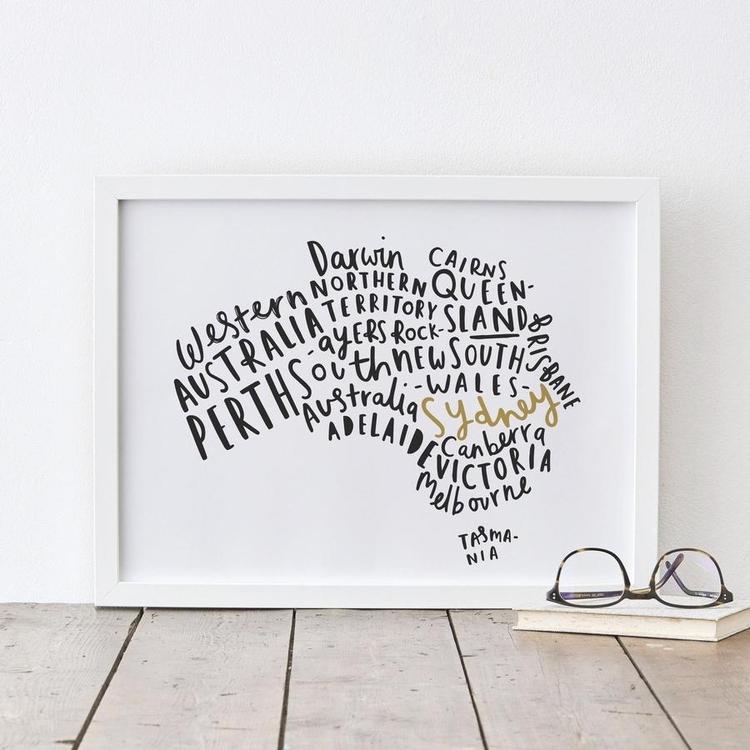 Darwin
CAIRNS
Western
NORTHERN
QUEEN-
AUSTRALIA
TERRITORY
SLAND
BRISBANE
PERTH
-AYERS ROCK-
South
NEW SOUTH
-WALES-
Australia
Sydney
ADELAIDE
Canberra
VICTORIA
Melbourne
TASMA-
NIA